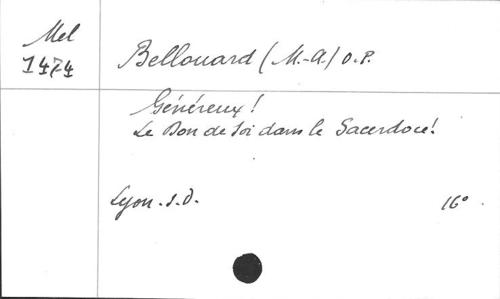 Mel
1474
Bellouard (M.-A.) O.P.
Généreux!
Le Don de Soi dans le Sacerdoce!
Lyon. s.d.
16°